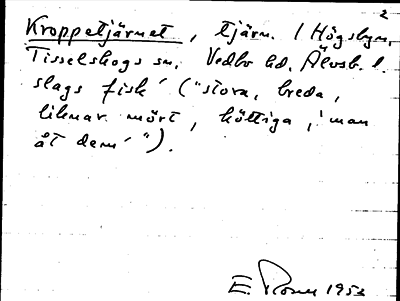 2
Kroppetjärnet, tjärn. / Högsbyn,
Tisselskogs sn, Vedbo hd, Älvsb. l.
slags fisk' ("stora, breda,
liknar mört, köttiga, 'man
åt dem'").
E. 1953